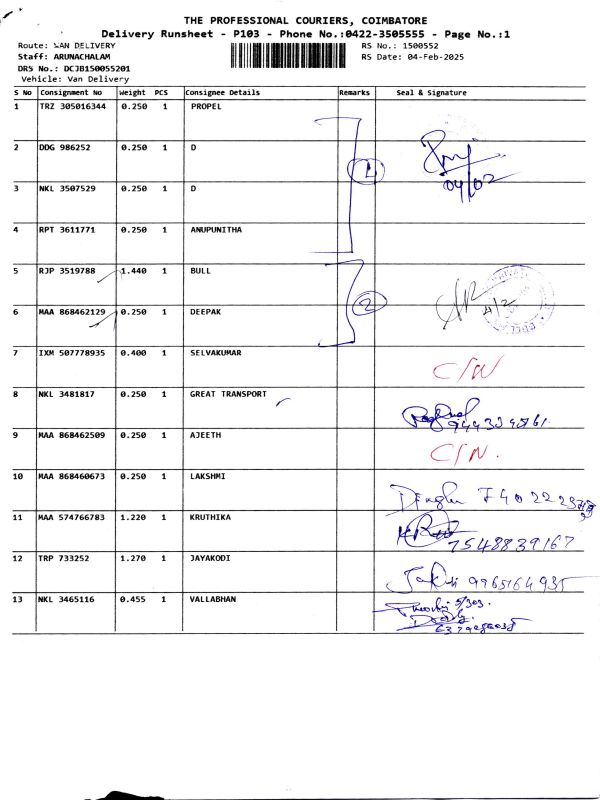 THE PROFESSIONAL COURIERS, COIMBATORE
Delivery Runsheet - P103 - Phone No.:0422-3505555 - Page No.:1
Route: VAN DELIVERY
RS No.: 1500552
Staff: ARUNACHALAM
RS Date: 04-Feb-2025
DRS No.: DCJB150055201
Vehicle: Van Delivery
S No Consignment No Weight PCS Consignee Details Remarks Seal & Signature
1 TRZ 305016344 0.250 1 PROPEL
2 DDG 986252 0.250 1 D
1
04/02
3 NKL 3507529 0.250 1 D
4 RPT 3611771 0.250 1 ANUPUNITHA
5 RJP 3519788 1.440 1 BULL
2
4/2
6 MAA 868462129 0.250 1 DEEPAK
7 IXM 507778935 0.400 1 SELVAKUMAR C/N
8 NKL 3481817 0.250 1 GREAT TRANSPORT
9 MAA 868462509 0.250 1 AJEETH C/N.
10 MAA 868460673 0.250 1 LAKSHMI
11 MAA 574766783 1.220 1 KRUTHIKA 7548839167
12 TRP 733252 1.270 1 JAYAKODI 9965164935
13 NKL 3465116 0.455 1 VALLABHAN